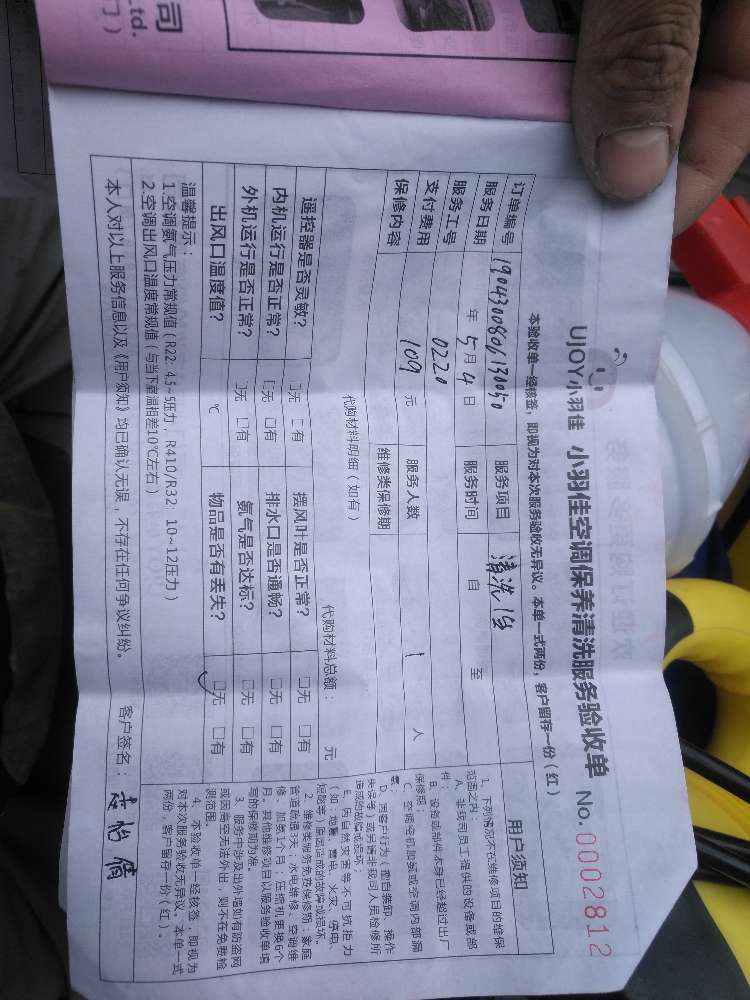 司
.td.
门）
UJOY小羽佳 小羽佳空调保养清洗服务验收单 No.0002812
本验收单一经核签，即视为对本次服务验收无异议。本单一式两份，客户留存一份（红）
订单编号 1904300806130050 服务项目 清洗1台
服务日期 年 5月4日 服务时间 自 至
服务工号 0220
支付费用 109 元 服务人数 1 人
保修内容 维修类保修期
代购材料明细（如有） 代购材料总额： 元
遥控器是否灵敏？ □无 □有 摆风叶是否正常？ □无 □有
内机运行是否正常？ □无 □有 排水口是否通畅？ □无 □有
外机运行是否正常？ □无 □有 氨气是否达标？ □无 □有
出风口温度值？ ℃ 物品是否有丢失？ □无 □有
温馨提示：
1.空调氨气压力常规值（R22：4.5~5压力，R410/R32：10~12压力）
2.空调出风口温度常规值（与当下室温相差10℃左右）
本人对以上服务信息以及《用户须知》均已确认无误，不存在任何争议纠纷。 客户签名：
用户须知
1、下列情况不在维修项目的维保
范围之内：
A、非我司员工提供的设备或部
件；
B、设备或部件本身已经超过出厂
保修期；
C、空调空机加氨或空调内部漏
氨；
D、因客户行为（擅自装卸、操作
失误等）或另请非我司人员检修所
造成的故障或损坏；
E、因自然灾害等不可抗拒力
（如：地震、雷电、火灾、停电、
短路等）原因造成的故障或损坏。
2、维修类服务免费保修期：家庭
管道疏通3天；水电维修、空调维
修、加氨1个月；压缩机更换6个
月；其他维修项目以服务验收单填
写的保修期为准。
3、服务中涉及出外墙如有防盗网
或因高空无法外出，则不在免费检
测范围。
4、本验收单一经核签，即视为
对本次服务验收无异议。本单一式
两份，客户留存一份（红）。